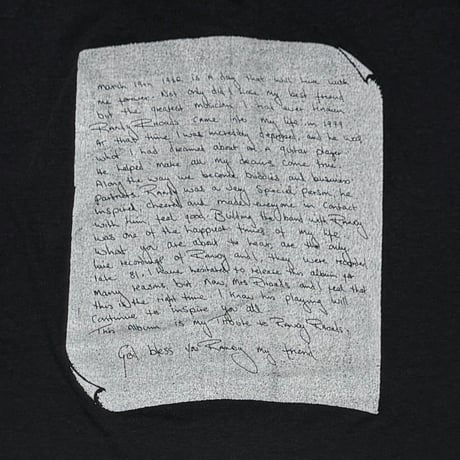 March 19th 1982 is a day that will live with
me forever. Not only did I lose my best friend
but the greatest musician I had ever known
Randy Rhoads came into my life in 1979
at that time I was incredibly depressed and he was
what I had dreamed about in a guitar player
He helped make all my dreams come true
Along the way we became buddies and business
partners. Randy was a very special person, he
inspired, cheered and made everyone in contact
with him feel good. Building the band with Randy
was one of the happiest times of my life
What you are about to hear, are the only
live recordings of Randy and I, they were recorded
late 81. I have hesitated to release this album for
many reasons but now, Mrs Rhoads and I feel that
this is the right time. I know his playing will
continue to inspire you all.
This album is my Tribute to Randy Rhoads,
God bless you Randy my friend